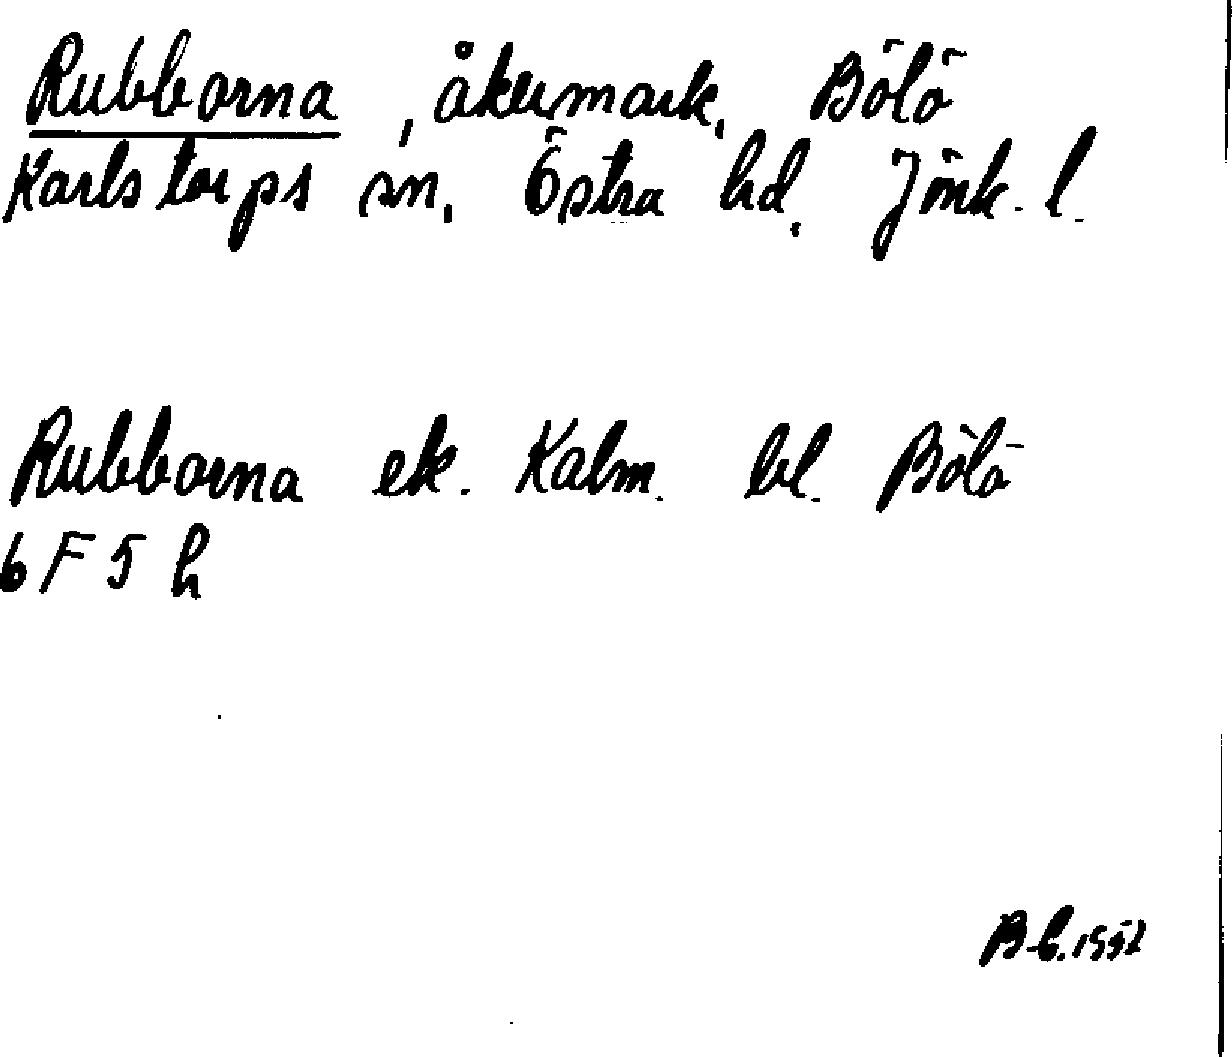 Rubborna, åkermark, Bölö
Karlstorps sn, Östra hd, Jönk. l.
Rubborna ek. Kalm. bl. Bölö
6 F 5 h